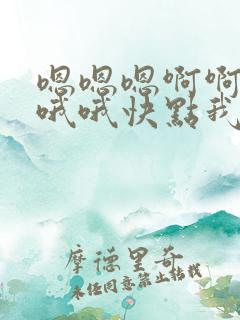 嗯嗯嗯啊啊
哦哦快點我
摩德里奇
未经同意禁止转载